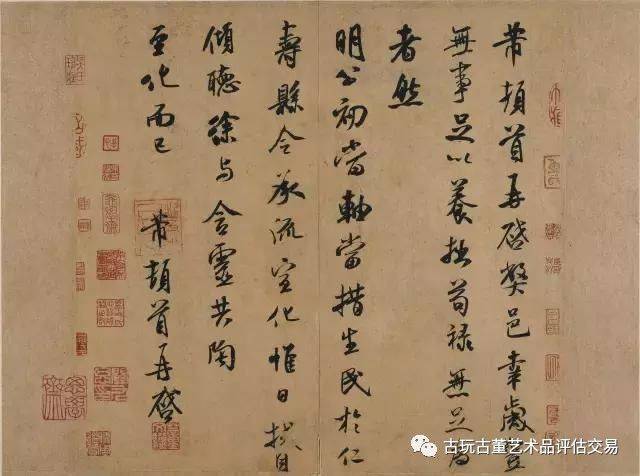 芾頓首再啓弊邑幸歲豐
無事足以養拙苟祿無足爲
者然
明公初當軸當措生民於仁
壽縣令承流宣化惟日拭目
傾聽徐与含靈共陶
至化而已
芾頓首再啓
古玩古董艺术品评估交易